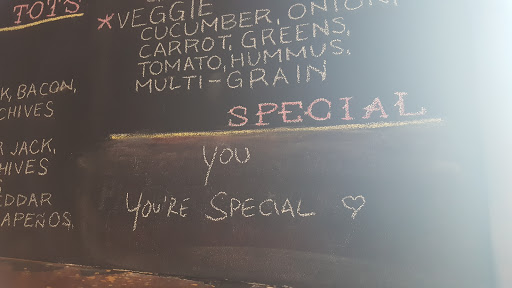 TOTS
K, BACON,
CHIVES
R JACK,
HIVES
EDDAR
APEÑOS,
*VEGGIE
CUCUMBER, ONION,
CARROT, GREENS,
TOMATO, HUMMUS,
MULTI-GRAIN
SPECIAL
YOU
YOU'RE SPECIAL ♡